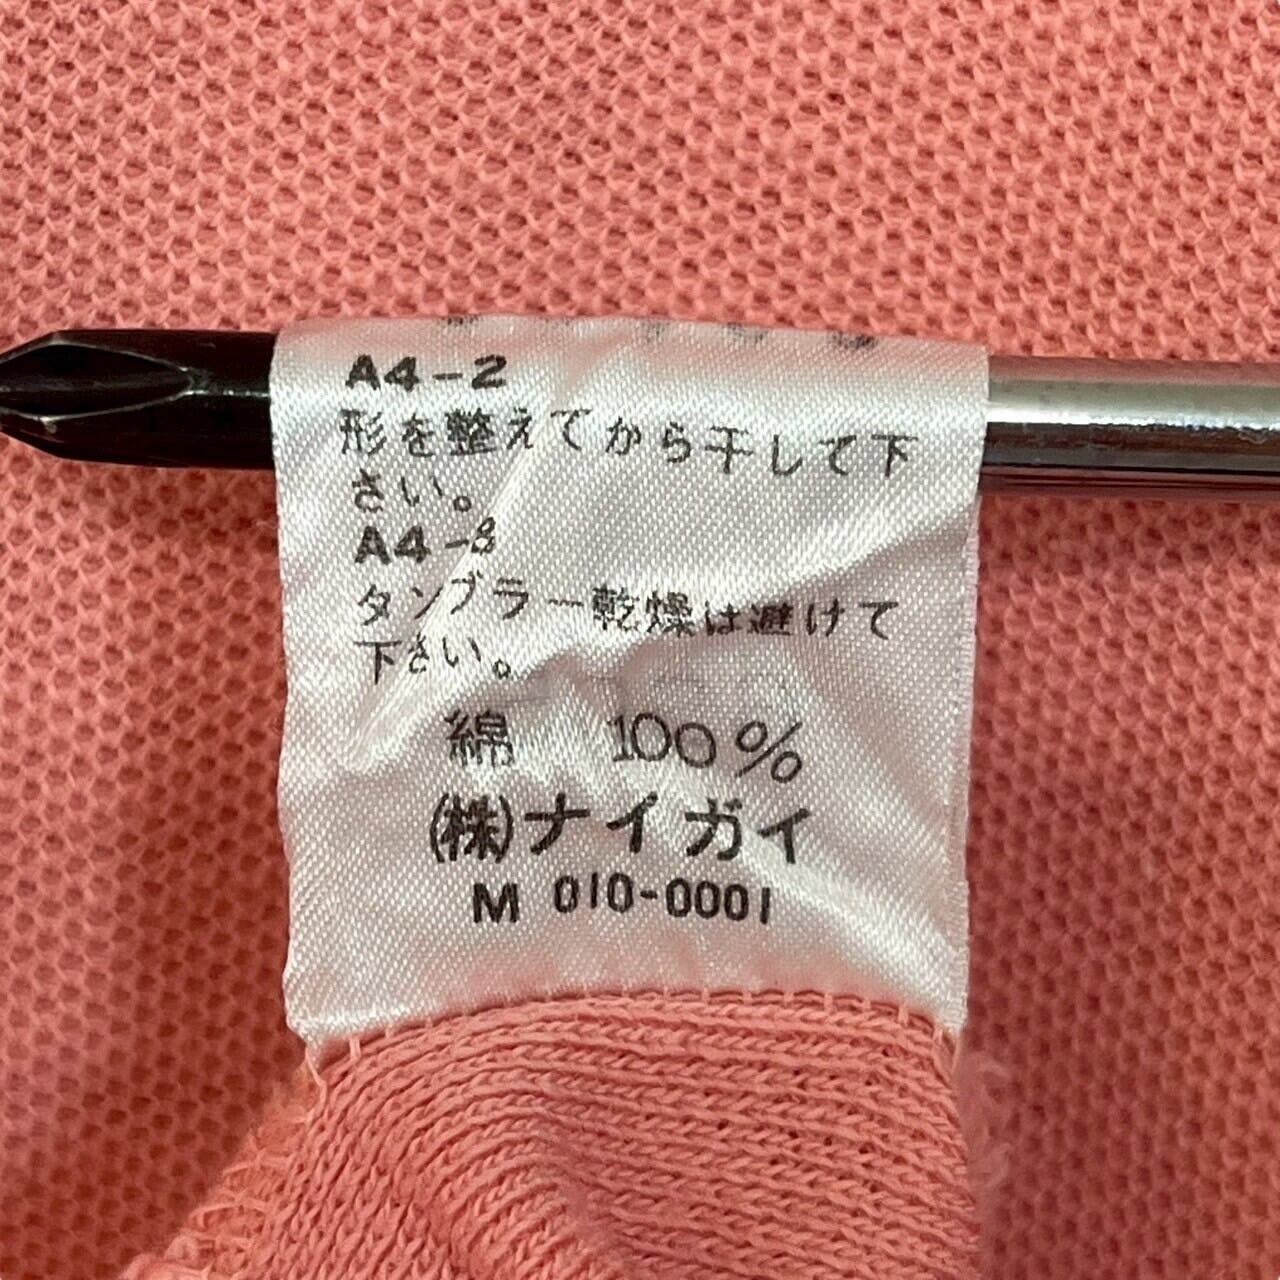 A4-2
形を整えてから干して下
さい。
A4-8
タンブラー乾燥は避けて
下さい。
綿 100%
(株)ナイガイ
M 010-0001